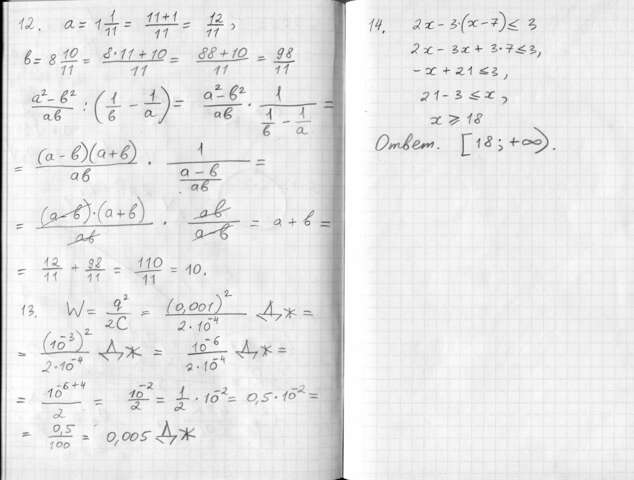 12. a = 1 1/11 = (11+1)/11 = 12/11,
в = 8 10/11 = (8·11+10)/11 = (88+10)/11 = 98/11
(a²-в²)/(aв) : (1/в - 1/a) = (a²-в²)/(aв) · 1/(1/в - 1/a) =
= (a-в)(a+в)/(aв) · 1/((a-в)/(aв)) =
= (a-в)·(a+в)/(aв) · (aв)/(a-в) = a+в =
= 12/11 + 98/11 = 110/11 = 10.
13. W = q²/2C = (0,001)²/(2·10⁻⁴) Дж =
= (10⁻³)²/(2·10⁻⁴) Дж = 10⁻⁶/(2·10⁻⁴) Дж =
= 10⁻⁶⁺⁴/2 = 10⁻²/2 = 1/2 · 10⁻² = 0,5·10⁻² =
= 0,5/100 = 0,005 Дж
14. 2x-3·(x-7) ≤ 3
2x-3x+3·7≤3,
-x+21≤3,
21-3≤x,
x ⩾ 18
Ответ. [18; +∞).